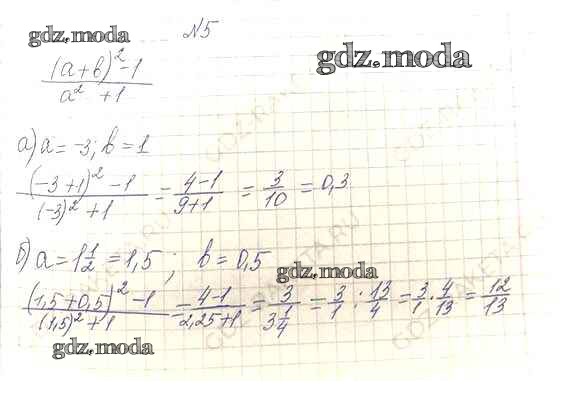 gdz.moda
№5
gdz.moda
(a+b)²-1 / a²+1
а) a = -3; b = 1
(-3+1)²-1 / (-3)²+1 = 4-1 / 9+1 = 3/10 = 0,3
б) a = 1 1/2 = 1,5; b = 0,5
gdz.moda
(1,5+0,5)²-1 / (1,5)²+1 = 4-1 / 2,25+1 = 3 / 3 1/4 = 3/1 : 13/4 = 3/1 · 4/13 = 12/13
gdz.moda